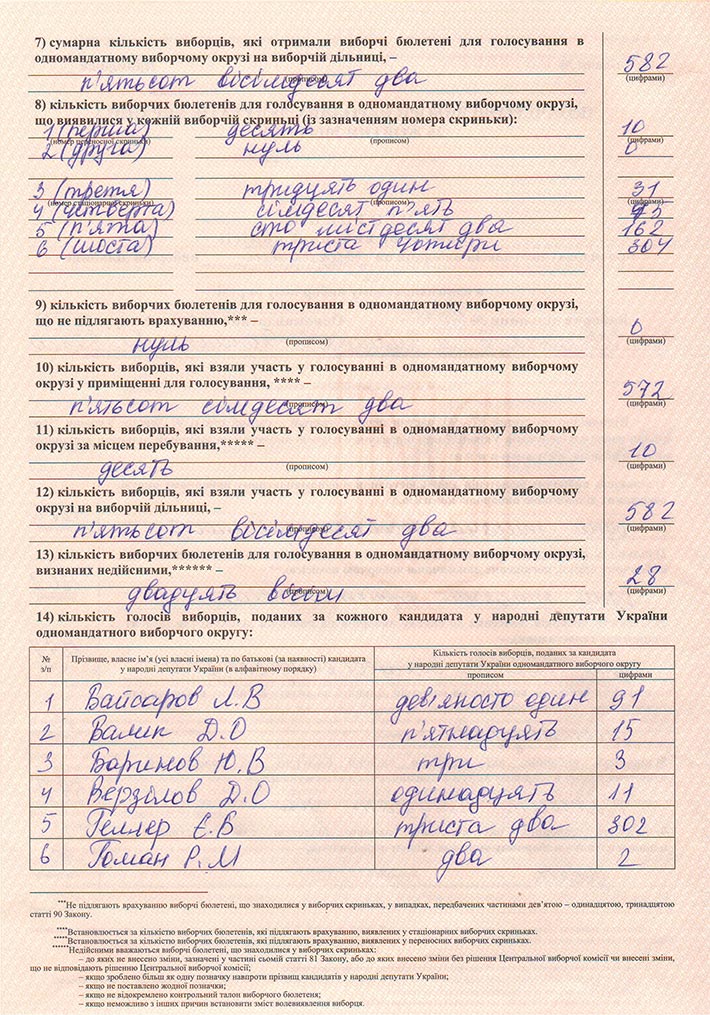 7) сумарна кількість виборців, які отримали виборчі бюлетені для голосування в
одномандатному виборчому окрузі на виборчій дільниці, –
582
(цифрами)
п'ятьсот вісімдесят два
(прописом)
8) кількість виборчих бюлетенів для голосування в одномандатному виборчому окрузі,
що виявилися у кожній виборчій скриньці (із зазначенням номера скриньки):
1 (перша) десять 10
(номер переносної скриньки) (прописом) (цифрами)
2 (друга) нуль 0
3 (третя) тридцять один 31
(номер стаціонарної скриньки) (прописом) (цифрами)
4 (четверта) сімдесят п'ять 75
5 (п'ята) сто шістдесят два 162
6 (шоста) триста чотири 304
9) кількість виборчих бюлетенів для голосування в одномандатному виборчому окрузі,
що не підлягають врахуванню,*** –
0
(цифрами)
нуль
(прописом)
10) кількість виборців, які взяли участь у голосуванні в одномандатному виборчому
окрузі у приміщенні для голосування, **** –
572
(цифрами)
п'ятьсот сімдесят два
(прописом)
11) кількість виборців, які взяли участь у голосуванні в одномандатному виборчому
окрузі за місцем перебування,***** –
10
(цифрами)
десять
(прописом)
12) кількість виборців, які взяли участь у голосуванні в одномандатному виборчому
окрузі на виборчій дільниці, –
582
(цифрами)
п'ятьсот вісімдесят два
(прописом)
13) кількість виборчих бюлетенів для голосування в одномандатному виборчому окрузі,
визнаних недійсними,****** –
28
(цифрами)
двадцять вісім
(прописом)
14) кількість голосів виборців, поданих за кожного кандидата у народні депутати України
одномандатного виборчого округу:
№ з/п
Прізвище, власне ім'я (усі власні імена) та по батькові (за наявності) кандидата
у народні депутати України (в алфавітному порядку)
Кількість голосів виборців, поданих за кандидата
у народні депутати України одномандатного виборчого округу
прописом цифрами
1 Байсаров Л.В дев'яносто один 91
2 Валик Д.О п'ятнадцять 15
3 Баринов Ю.В три 3
4 Верзілов Д.О одинадцять 11
5 Геллер Є.Б триста два 302
6 Гоман Р.М два 2
***Не підлягають врахуванню виборчі бюлетені, що знаходилися у виборчих скриньках, у випадках, передбачених частинами дев'ятою – одинадцятою, тринадцятою
статті 90 Закону.
****Встановлюється за кількістю виборчих бюлетенів, які підлягають врахуванню, виявлених у стаціонарних виборчих скриньках.
*****Встановлюється за кількістю виборчих бюлетенів, які підлягають врахуванню, виявлених у переносних виборчих скриньках.
******Недійсними вважаються виборчі бюлетені, що знаходилися у виборчих скриньках:
– до яких не внесено зміни, зазначені у частині сьомій статті 81 Закону, або до яких внесено зміни без рішення Центральної виборчої комісії чи внесені зміни,
що не відповідають рішенню Центральної виборчої комісії;
– якщо зроблено більш як одну позначку навпроти прізвищ кандидатів у народні депутати України;
– якщо не поставлено жодної позначки;
– якщо не відокремлено контрольний талон виборчого бюлетеня;
– якщо неможливо з інших причин встановити зміст волевиявлення виборця.